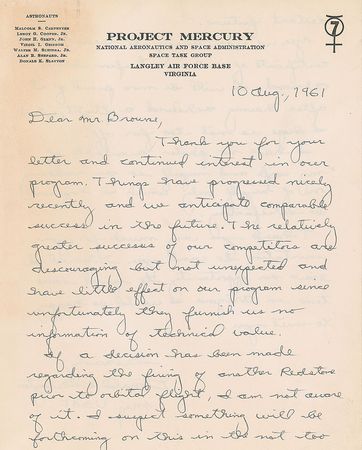 ASTRONAUTS
MALCOLM S. CARPENTER
LEROY G. COOPER, JR.
JOHN H. GLENN, JR.
VIRGIL I. GRISSOM
WALTER M. SCHIRRA, JR.
ALAN B. SHEPARD, JR.
DONALD K. SLAYTON
PROJECT MERCURY
NATIONAL AERONAUTICS AND SPACE ADMINISTRATION
SPACE TASK GROUP
LANGLEY AIR FORCE BASE
VIRGINIA
7
10 Aug., 1961
Dear Mr. Browne,
Thank you for your
letter and continued interest in our
program. Things have progressed nicely
recently and we anticipate comparable
success in the future. The relatively
greater successes of our competitors are
discouraging but not unexpected and
have little effect on our program since
unfortunately they furnish us no
information of technical value.
If a decision has been made
regarding the firing of another Redstone
prior to orbital flight, I am not aware
of it. I suspect something will be
forthcoming on this in the not too